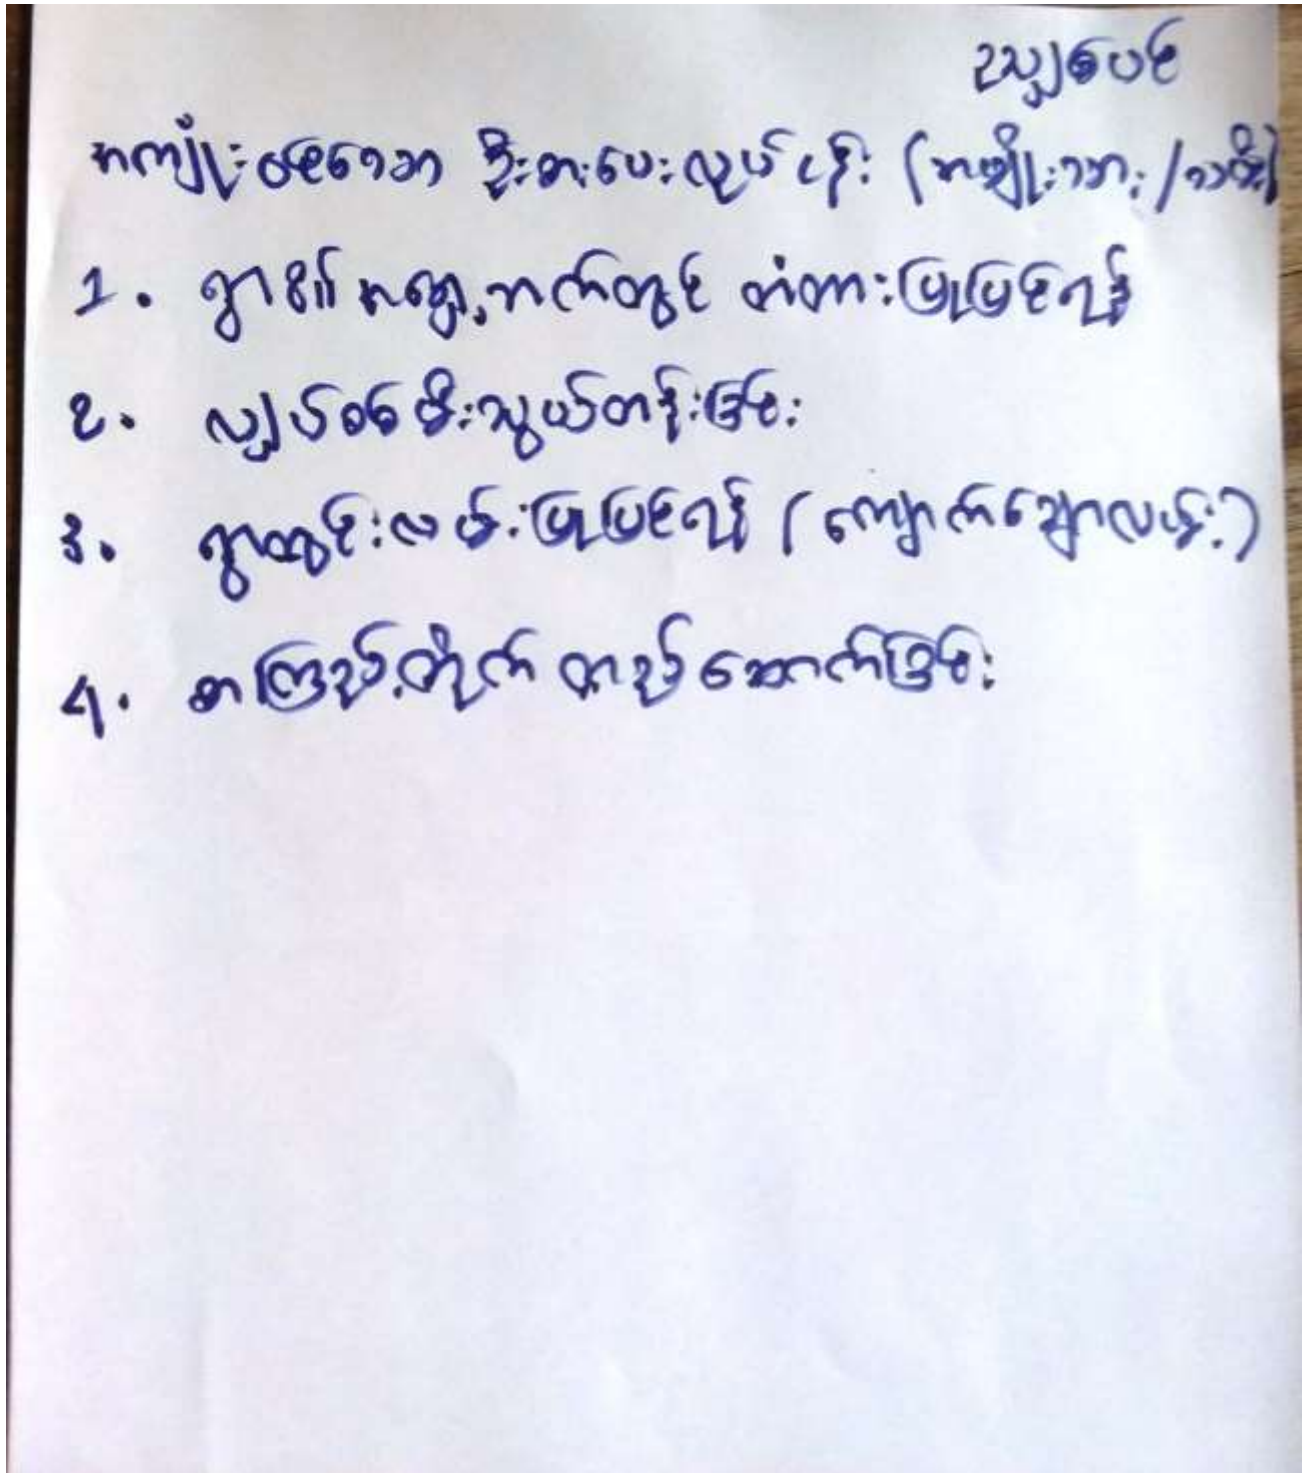 ညှပ်ပင်
အကျုံးဝင်သော ဦးစားပေးလုပ်ငန်း (အမျိုးသား/သမီး)
1. ရွာ၏ အရှေ့ဘက်တွင် တံတားပြုပြင်ရန်
2. လျှပ်စစ်မီးသွယ်တန်းခြင်း
3. ရွာတွင်းလမ်းပြုပြင်ရန် (ကျောက်ချောလမ်း)
4. စာကြည့်တိုက် တည်ဆောက်ခြင်း